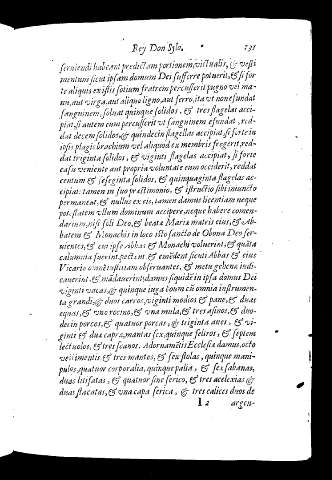 Rey Don Sylo. 131
seruiendi habeant predictam portionem, victualis, & vesti
mentum sicut ipsam domum Dei sufferre potuerit, & si for
te aliquis ex istis sotium fratrem percusserit pugno vel ma
nu, aut virga, aut aliquo ligno, aut ferro, ita vt non efundat
sanguinem, soluat quinque solidos, & tres flagellas acci
piat, si autem eum percusserit vt sanguinem efundat, red
dat decem solidos, & quindecim flagellas accipiat, si forte in
ipsis plagis brachium vel aliquod ex membris fregerit, red
dat triginta solidos, & viginti flagelas accipiat, si forte
casu veniente aut propria voluntate eum occiderit, reddat
centum & sexaginta solidos, & quinquaginta flagelas ac
cipiat: tamen in suo prestimonio, & istructio sibi inuncto
permaneat, & nullus ex eis, tamen damus licentiam neque
potestatem vllum dominum accipere, neque habere comen
darium, nisi soli Deo, & beata Maria matris eius, & Ab-
batem & Monachis in loco isto sancto de Obona Deo ser-
uientes, & cum ipse Abbas & Monachi voluerint, & quãta
calumnia fuerint, sectum & emẽdent sicuti Abbas & eius
Vicario
cauerint, & mãdauerint: damus siquidẽ in ipsa domus Dei
viginti vacas, & quinque iuga bouum cũ omnia instrumen-
ta grandi, & duos carros, viginti modios & pane, & duas
equas, & vno rocino, & vna mula, & tres asinos, & duo-
decim porcos, & quatuor porcas, & triginta oues, & vi-
ginti & dua capras, mantas sex, quinque feltros, & septem
lectuolos, & tres scanos. Adornamẽtis Ecclesiæ damus, octo
vestimentis & tres mantos, & sex stolas, quinque mani-
pulos, quatuor corporalia, quinque palia, & sex sabanas,
duas litisatas, & quatuor sine serico, & tres acelexias &
duas stacatas, & vna capa serica, & tres calices duos de
I 2 argen-